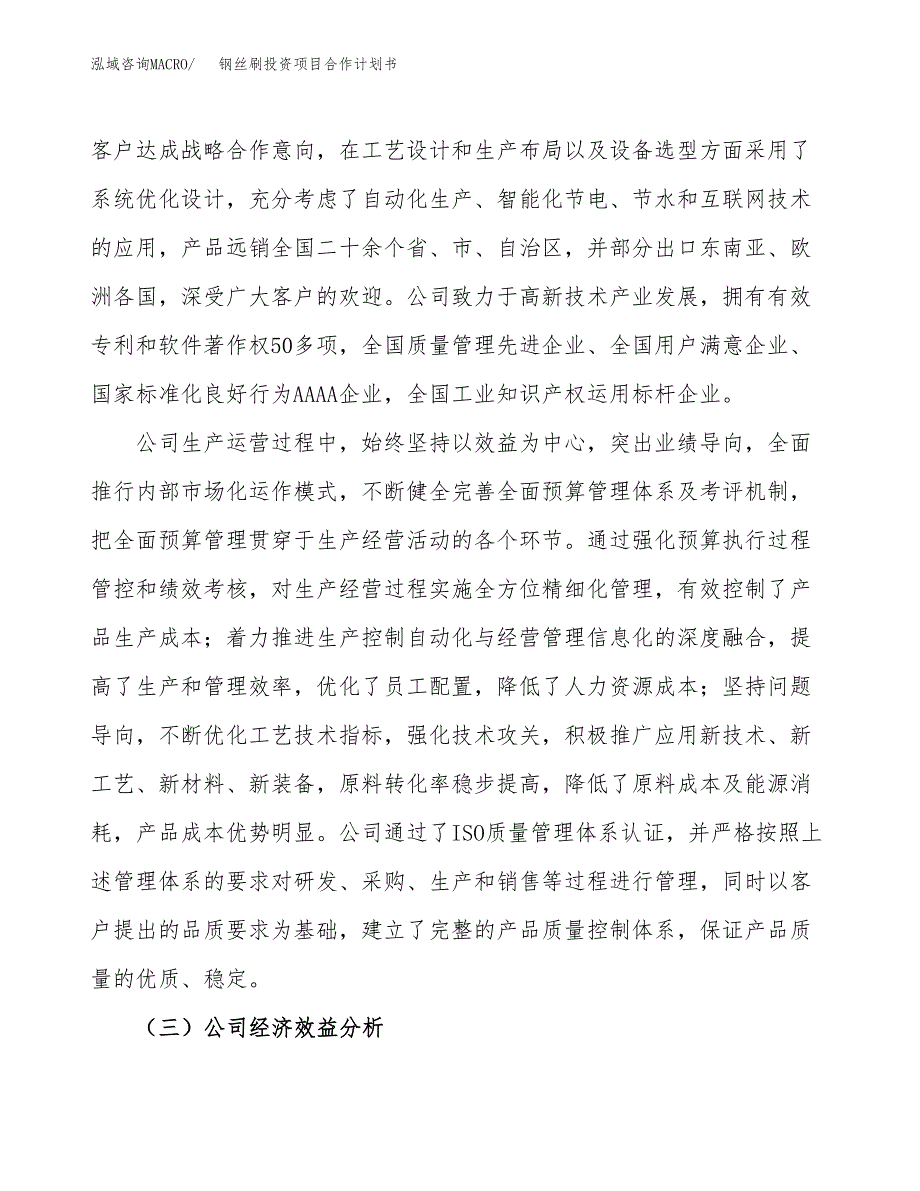 泓域咨询MACRO/ 钢丝刷投资项目合作计划书
客户达成战略合作意向，在工艺设计和生产布局以及设备选型方面采用了
系统优化设计，充分考虑了自动化生产、智能化节电、节水和互联网技术
的应用，产品远销全国二十余个省、市、自治区，并部分出口东南亚、欧
洲各国，深受广大客户的欢迎。公司致力于高新技术产业发展，拥有有效
专利和软件著作权50多项，全国质量管理先进企业、全国用户满意企业、
国家标准化良好行为AAAA企业，全国工业知识产权运用标杆企业。
公司生产运营过程中，始终坚持以效益为中心，突出业绩导向，全面
推行内部市场化运作模式，不断健全完善全面预算管理体系及考评机制，
把全面预算管理贯穿于生产经营活动的各个环节。通过强化预算执行过程
管控和绩效考核，对生产经营过程实施全方位精细化管理，有效控制了产
品生产成本；着力推进生产控制自动化与经营管理信息化的深度融合，提
高了生产和管理效率，优化了员工配置，降低了人力资源成本；坚持问题
导向，不断优化工艺技术指标，强化技术攻关，积极推广应用新技术、新
工艺、新材料、新装备，原料转化率稳步提高，降低了原料成本及能源消
耗，产品成本优势明显。公司通过了ISO质量管理体系认证，并严格按照上
述管理体系的要求对研发、采购、生产和销售等过程进行管理，同时以客
户提出的品质要求为基础，建立了完整的产品质量控制体系，保证产品质
量的优质、稳定。
（三）公司经济效益分析